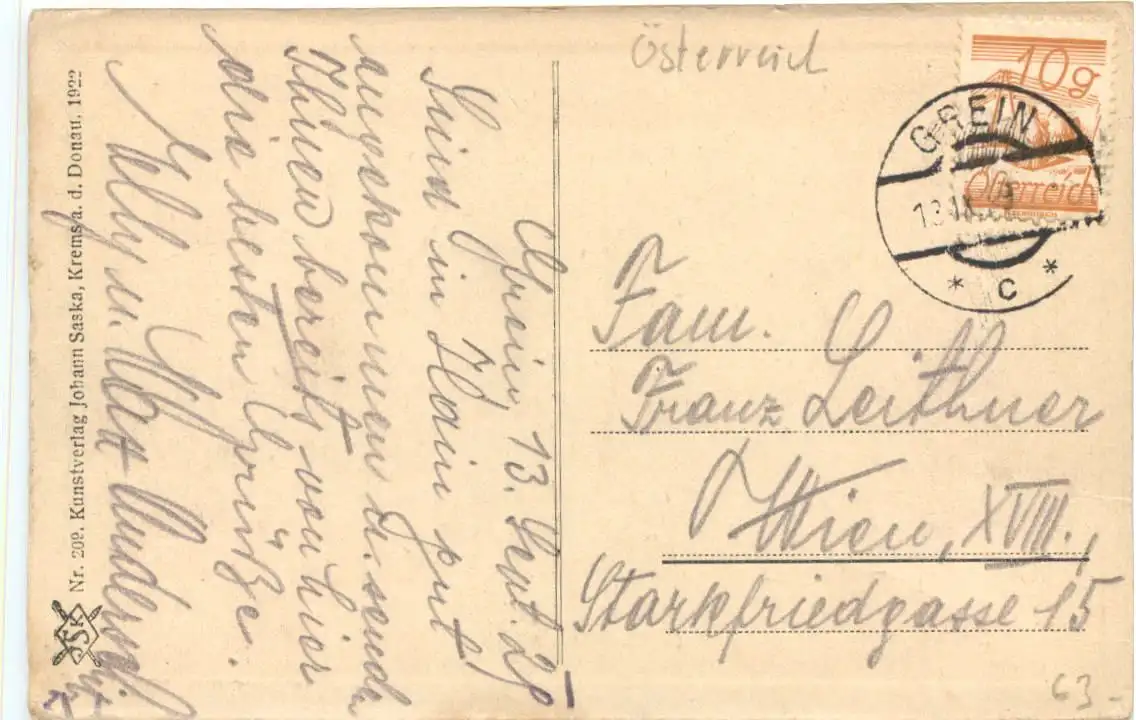 Österreich
10g
Österreich
GREIN
* C *
Fam.
Franz Leithner
Wien, XVIII.,
Starkfriedgasse 15
Grein, 13.
Sind in Grein gut
angekommen u. senden
Ihnen bereits von hier
die besten Grüße.
Nr. 209. Kunstverlag Johann Saska, Krems a. d. Donau. 1922
JSK
63-